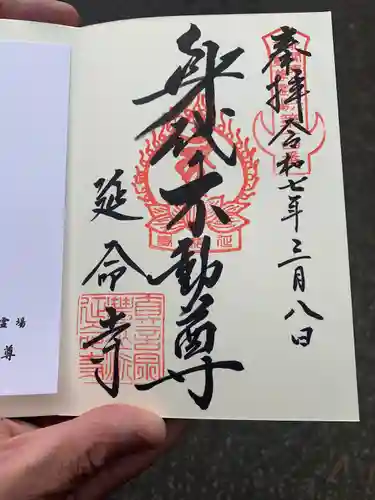 奉拝
令和七年三月八日
身代り不動尊
延命寺
霊場
尊